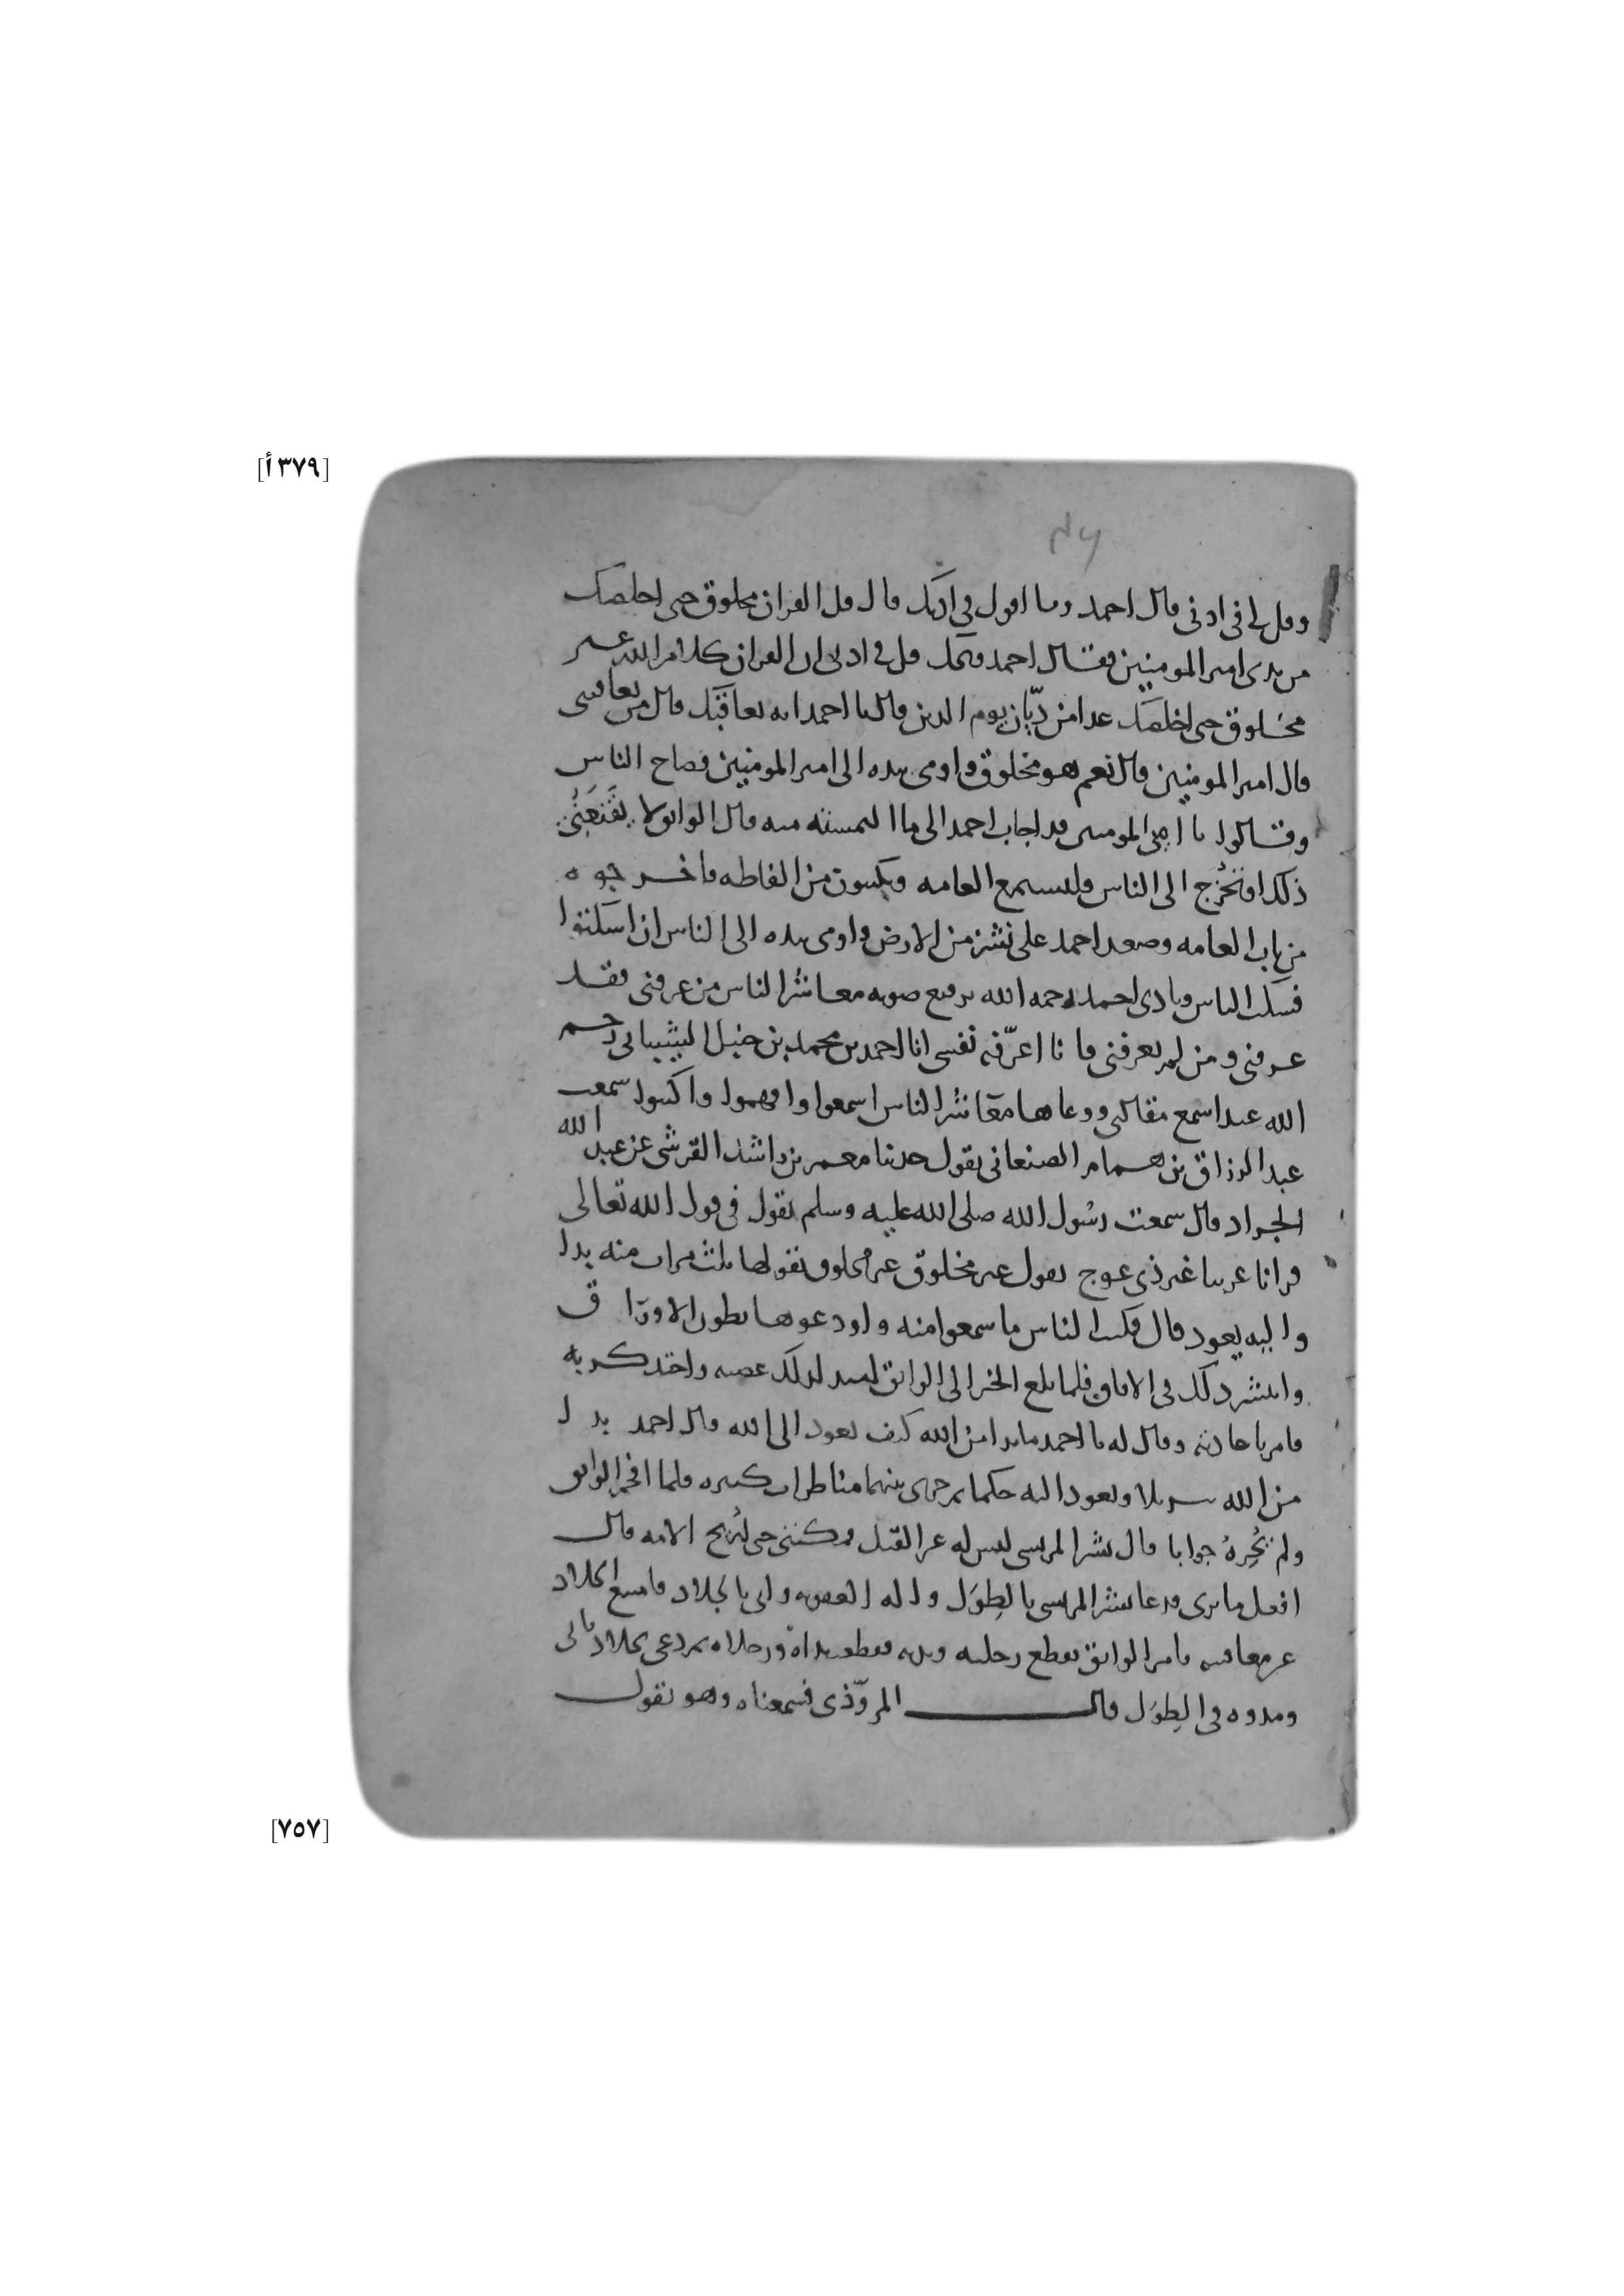 [٣٧٩أ]
وقل لي في اذني قال احمد وما اقول في اذنك قال قل القران مخلوق حتى اخلصك
من يدي امير المومنين فقال احمد ويحك قل في اذني ان القران كلام الله غير
مخلوق حتى اخلصك غدا من ديّان يوم الدين قال يا احمد انه يعاقبك قال من يعاقبني
قال امير المومنين قال نعم هو مخلوق واومى بيده الى امير المومنين فصاح الناس
وقالوا يا امير المومنين قد اجاب احمد الى ما التمسته منه قال الواثق لا يقنعني
ذلك او تخرج الى الناس وليسمع العامه ويكتبون من الفاظه فاخرجوه
من باب العامه وصعد احمد على نشز من الارض واومى بيده الى الناس ان اسكتوا
فسكت الناس ونادى احمد رحمه الله برفيع صوته معاشر الناس من عرفني فقد
عرفني ومن لم يعرفني فانا اعرّفه نفسي انا احمد بن محمد بن حنبل الشيباني رحم
الله عبدا سمع مقالتي ووعاها معاشر الناس اسمعوا وافهموا واكتبوا سمعت
عبد الرزاق بن همام الصنعاني يقول حدثنا معمر بن راشد القرشي عن عبد الله
الجراد قال سمعت رسول الله صلى الله عليه وسلم يقول في قول الله تعالى
قرانا عربيا غير ذي عوج يقول غير مخلوق غير مخلوق يقولها ثلث مرات منه بدا
واليه يعود قال فكتب الناس ما سمعوا منه واودعوها بطون الاوراق
وانتشر ذلك في الافاق فلما بلغ الخبر الى الواثق اشتد لذلك غضبه واحتد كربه
فامر باحضاره وقال له يا احمد ما بدا من الله كيف يعود الى الله قال احمد بدا
من الله تنزيلا ويعود اليه حكما ثم جرى بينهما مناظرات كثيره فلما افحم الواثق
ولم يُحِرهُ جوابا قال بشر المريسي ليس له غير القتل فمكنني حتى نُريح الامه قال
افعل ما ترى فدعا بشر المريسي بالطِوَل والة العقوبه واتى بالجلاد فامتنع الجلاد
عن معاقبته فامر الواثق بقطع رجليه ويديه فقطعت يداه ورجلاه ثم دعى بجلاد ثاني
ومدوه في الطِوَل قال المرّوذي فسمعناه وهو يقول
[٧٥٧]